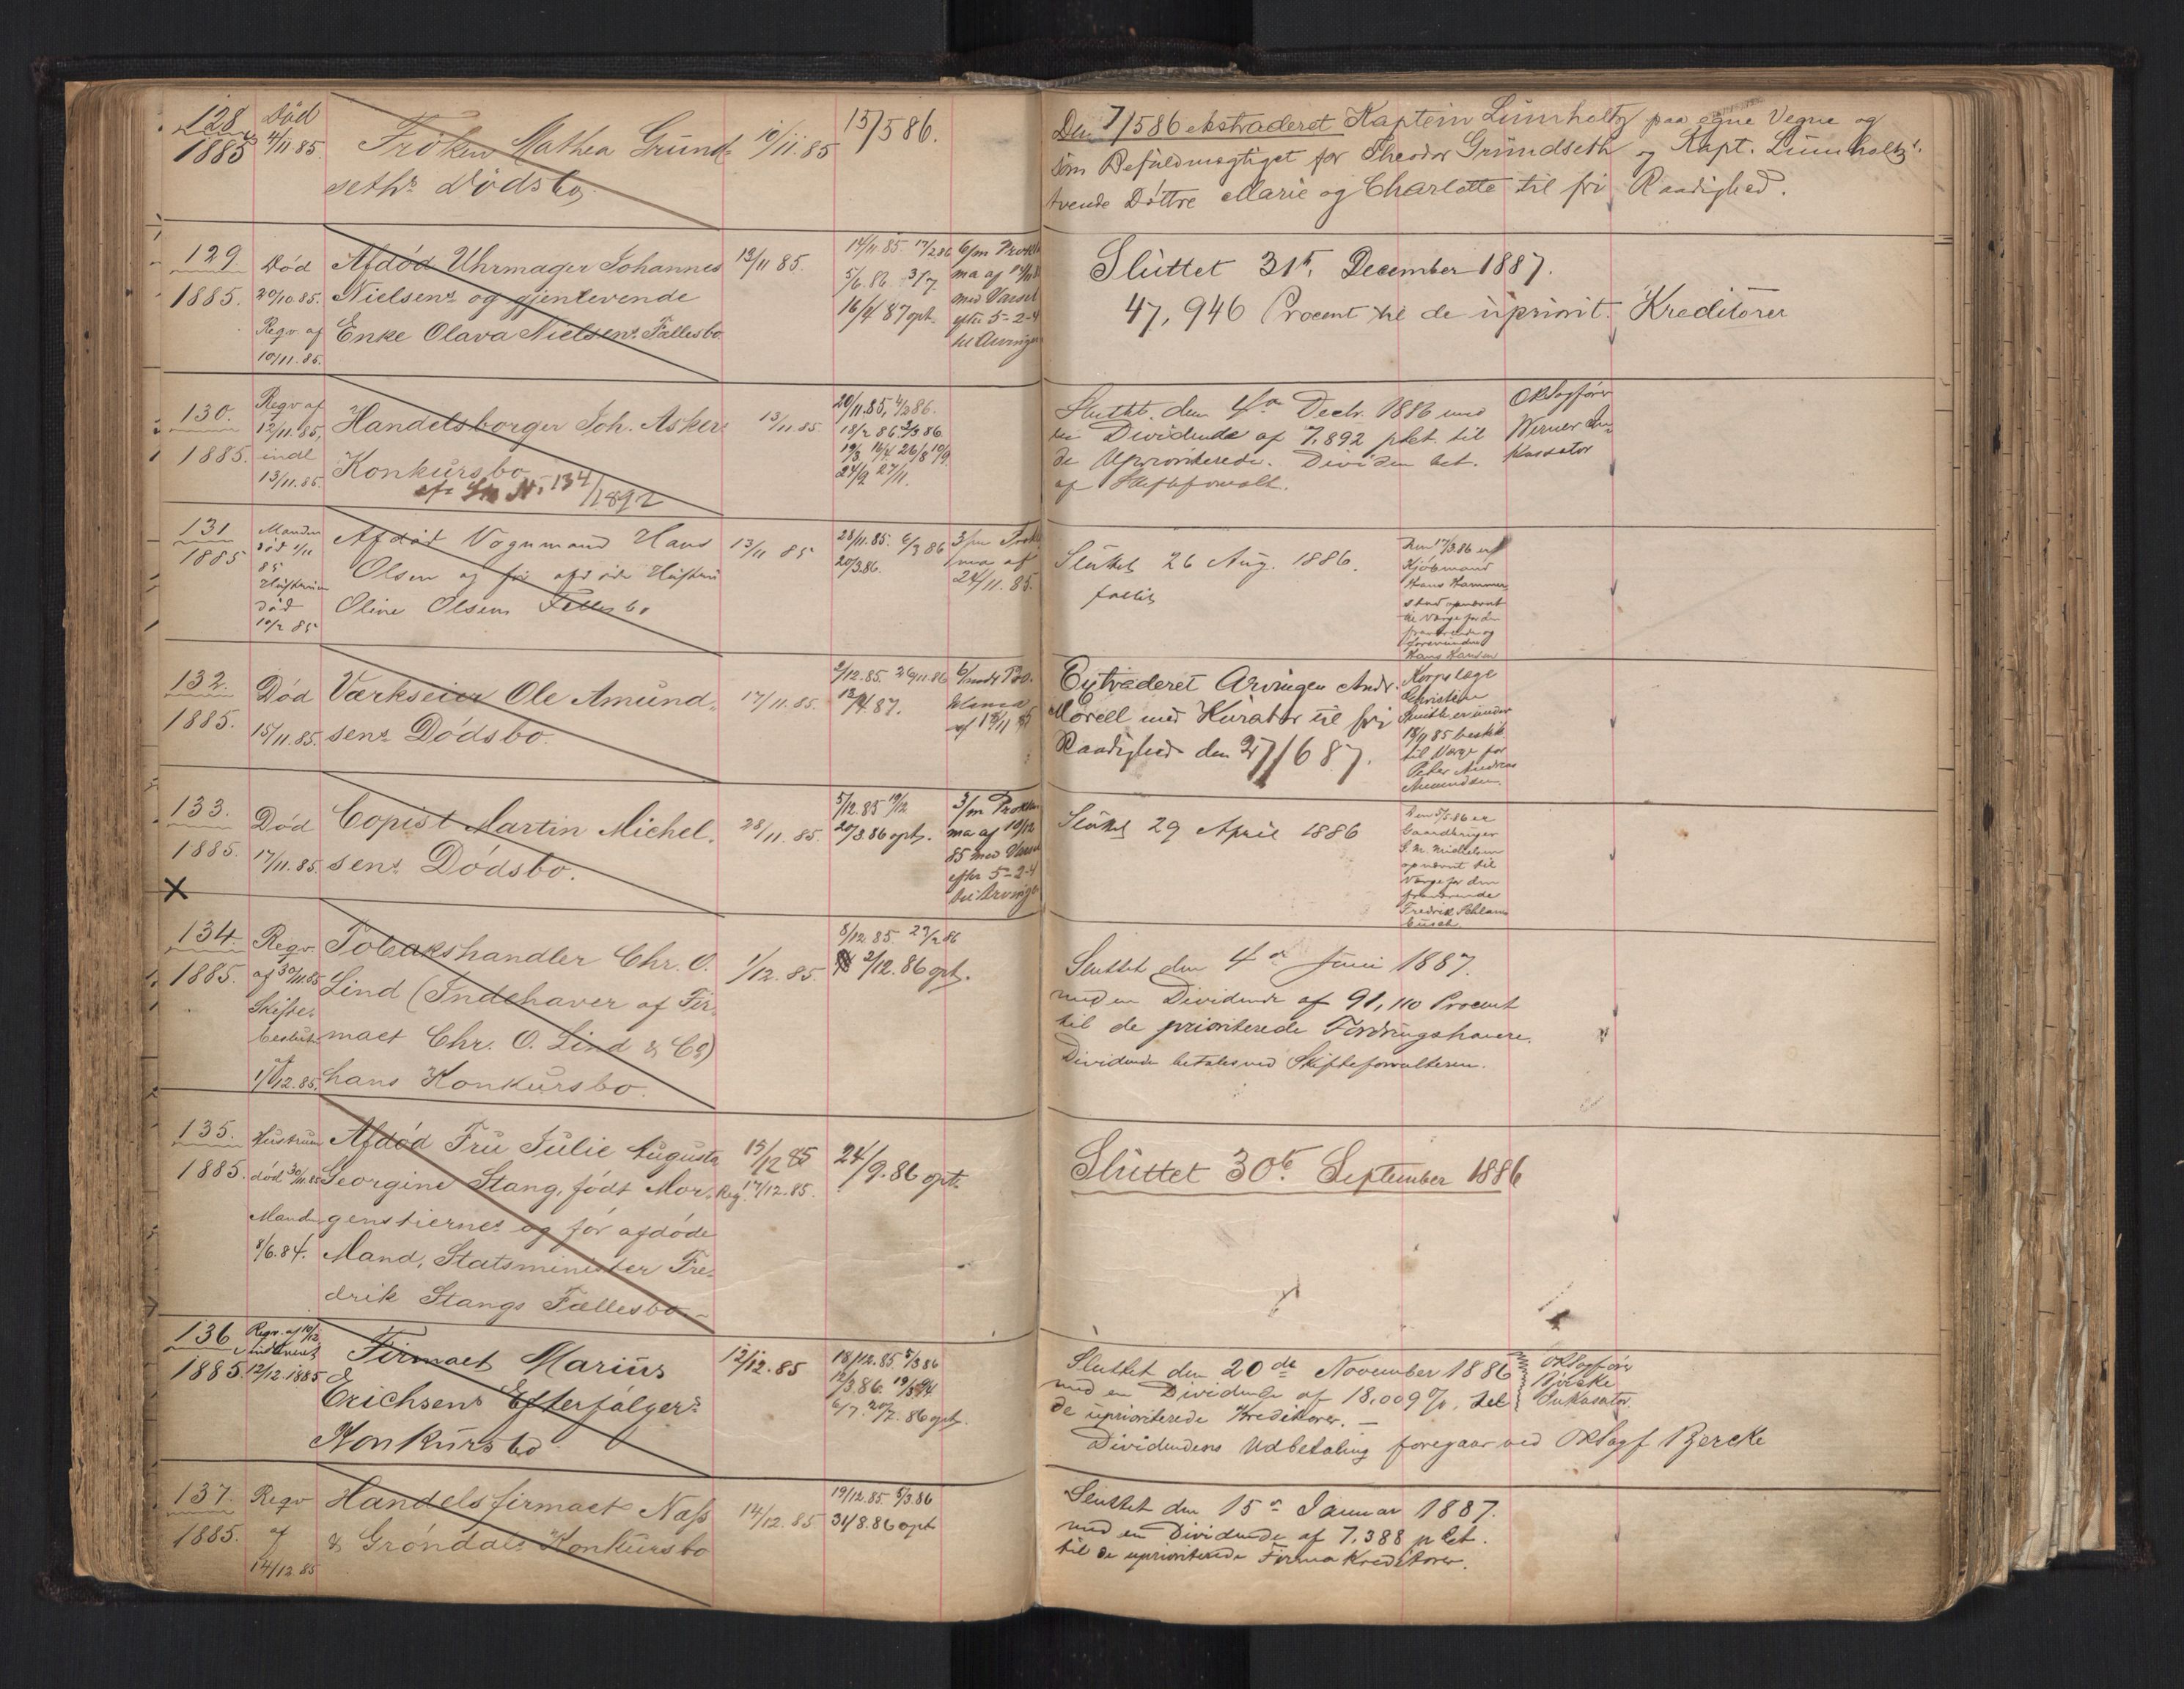 128
1885
Død
4/11 85.
Frøken Mathea Gründ-
seths Dødsbo.
10/11.85
15/5 86.
Den 7/5 86 ekstraderet Kaptein Lumholtz paa egne Vegne og
som Befuldmægtiget for Theodor Gründseth og Kapt. Lumholtz'
tvende Døttre Marie og Charlotte til fri Raadighed.
129
1885.
Død
20/10.85.
Reqv. af
10/11.85.
Afdød Uhrmager Johannes
Nielsens og gjenlevende
Enke Olava Nielsens Fællesbo
13/11 85.
14/11.85. 17/2 86
5/6.86 3/7.
16/4 87 opt.
6/m Prokla
ma af 14/11 85
med Varsel
efter 5-2-4
til Arvinger
Sluttet 31te December 1887.
47,946 Procent til de upriorit. Kreditorer
130.
1885.
Reqv af
12/11.85,
indl
13/11.85.
Handelsborger Joh. Askers
Konkursbo
cfr No 134/1892
13/11.85
20/11.85, 4/2 86.
18/2 86 3/3 86
24/9 27/11.
Sluttet den 4de Decbr. 1886 med
en Dividende af 7,892 pCt. til
de Upriorterede. Dividen bet.
af Skifteforvalt.
ORSagfører
Werner
Kassator
131
1885
Manden
død 1/11
85
Hustruen
død
10/2 85
Afdød Vognmand Hans
Olsen og før afdøde Hustru
Oline Olsens Fællesbo
13/11 85
28/11.85. 6/3 86
20/3.86.
3/m Prokla
ma af
24/11.85.
Sluttet 26 Aug. 1886.
fallit
Den 17/3.86 er
Kjøbmand
Hans Hammer
stad opnævnt
til Værge for den
fraværende og
Hans Hansen
132.
1885.
Død
15/11.85.
Værkseier Ole Amund-
sens Dødsbo.
17/11.85.
2/12.85. 26/11.86
13/4.87.
6/mdr Pro-
klama
af 18/11 85
Extraderet Arvingen Andr.
Morell med Kurator til fri
Raadighed den 27/6 87.
Korpslæge
Christian
Smith er under
18/11 85 beskik.
til Værge for
Peter Andreas
Amundsen.
133.
1885.
Død
17/11.85.
Copist Martin Michel-
sens Dødsbo.
28/11.85.
5/12.85 19/12
20/3.86 opt.
3/m Prokla
ma af 10/12
85 med Varsel
efter 5-2-4
til Arvinger
Sluttet 29 April 1886
Den 5/5.86 er
Gaardbruger
S. M. Michelsen
opnævnt til
Værge for den
fraværende
Fredrik Schlam
busch
X
134.
1885.
Reqv.
af 30/11.85
Skifte-
beslut.
1/12.85.
Tobakshandler Chr. O.
Lind (Indehaver af Fir-
maet Chr. O. Lind & Co)
hans Konkursbo.
1/12.85.
8/12 85. 27/2 86
2/12.86 opt.
Sluttet den 4de Juni 1887.
med en Dividende af 91,110 Procent
til de prioriterede Fordringshavere.
Dividende betales ved Skifteforvalteren.
135.
1885.
Hustruen
død 30/11.85
Manden
8/6.84.
Afdød Fru Julie Augusta
Georgine Stang, født Mor-
genstiernes og før afdøde
Mand, Statsminister Fre-
drik Stangs Fællesbo
15/12 85
Reg. 17/12.85.
24/9.86 opt.
Sluttet 30te September 1886
136
1885.
Reqv. af 10/12
indleveret
12/12.1885
Firmaet Marius
Erichsens Efterfølgers
Konkursbo
12/12.85
18/12.85. 5/3 86
12/3.86.
6/7. 20/7. 86 opt.
Sluttet den 20de November 1886
med en Dividende af 18,009 %, til
de uprioriterede Kreditorer. —
Dividendens Udbetaling foregaar ved ORSagf Bjercke
ORSagfører
Bjercke
Inkasator
137.
1885.
Reqv
af
14/12 85
Handelsfirmaet Næss
& Grøndals Konkursbo
14/12.85
19/12.85. 5/3.86
31/8.86 opt
Sluttet den 15de Januar 1887.
med en Dividende af 7,388 pCt.
til de uprioriterede Firma Kreditorer.